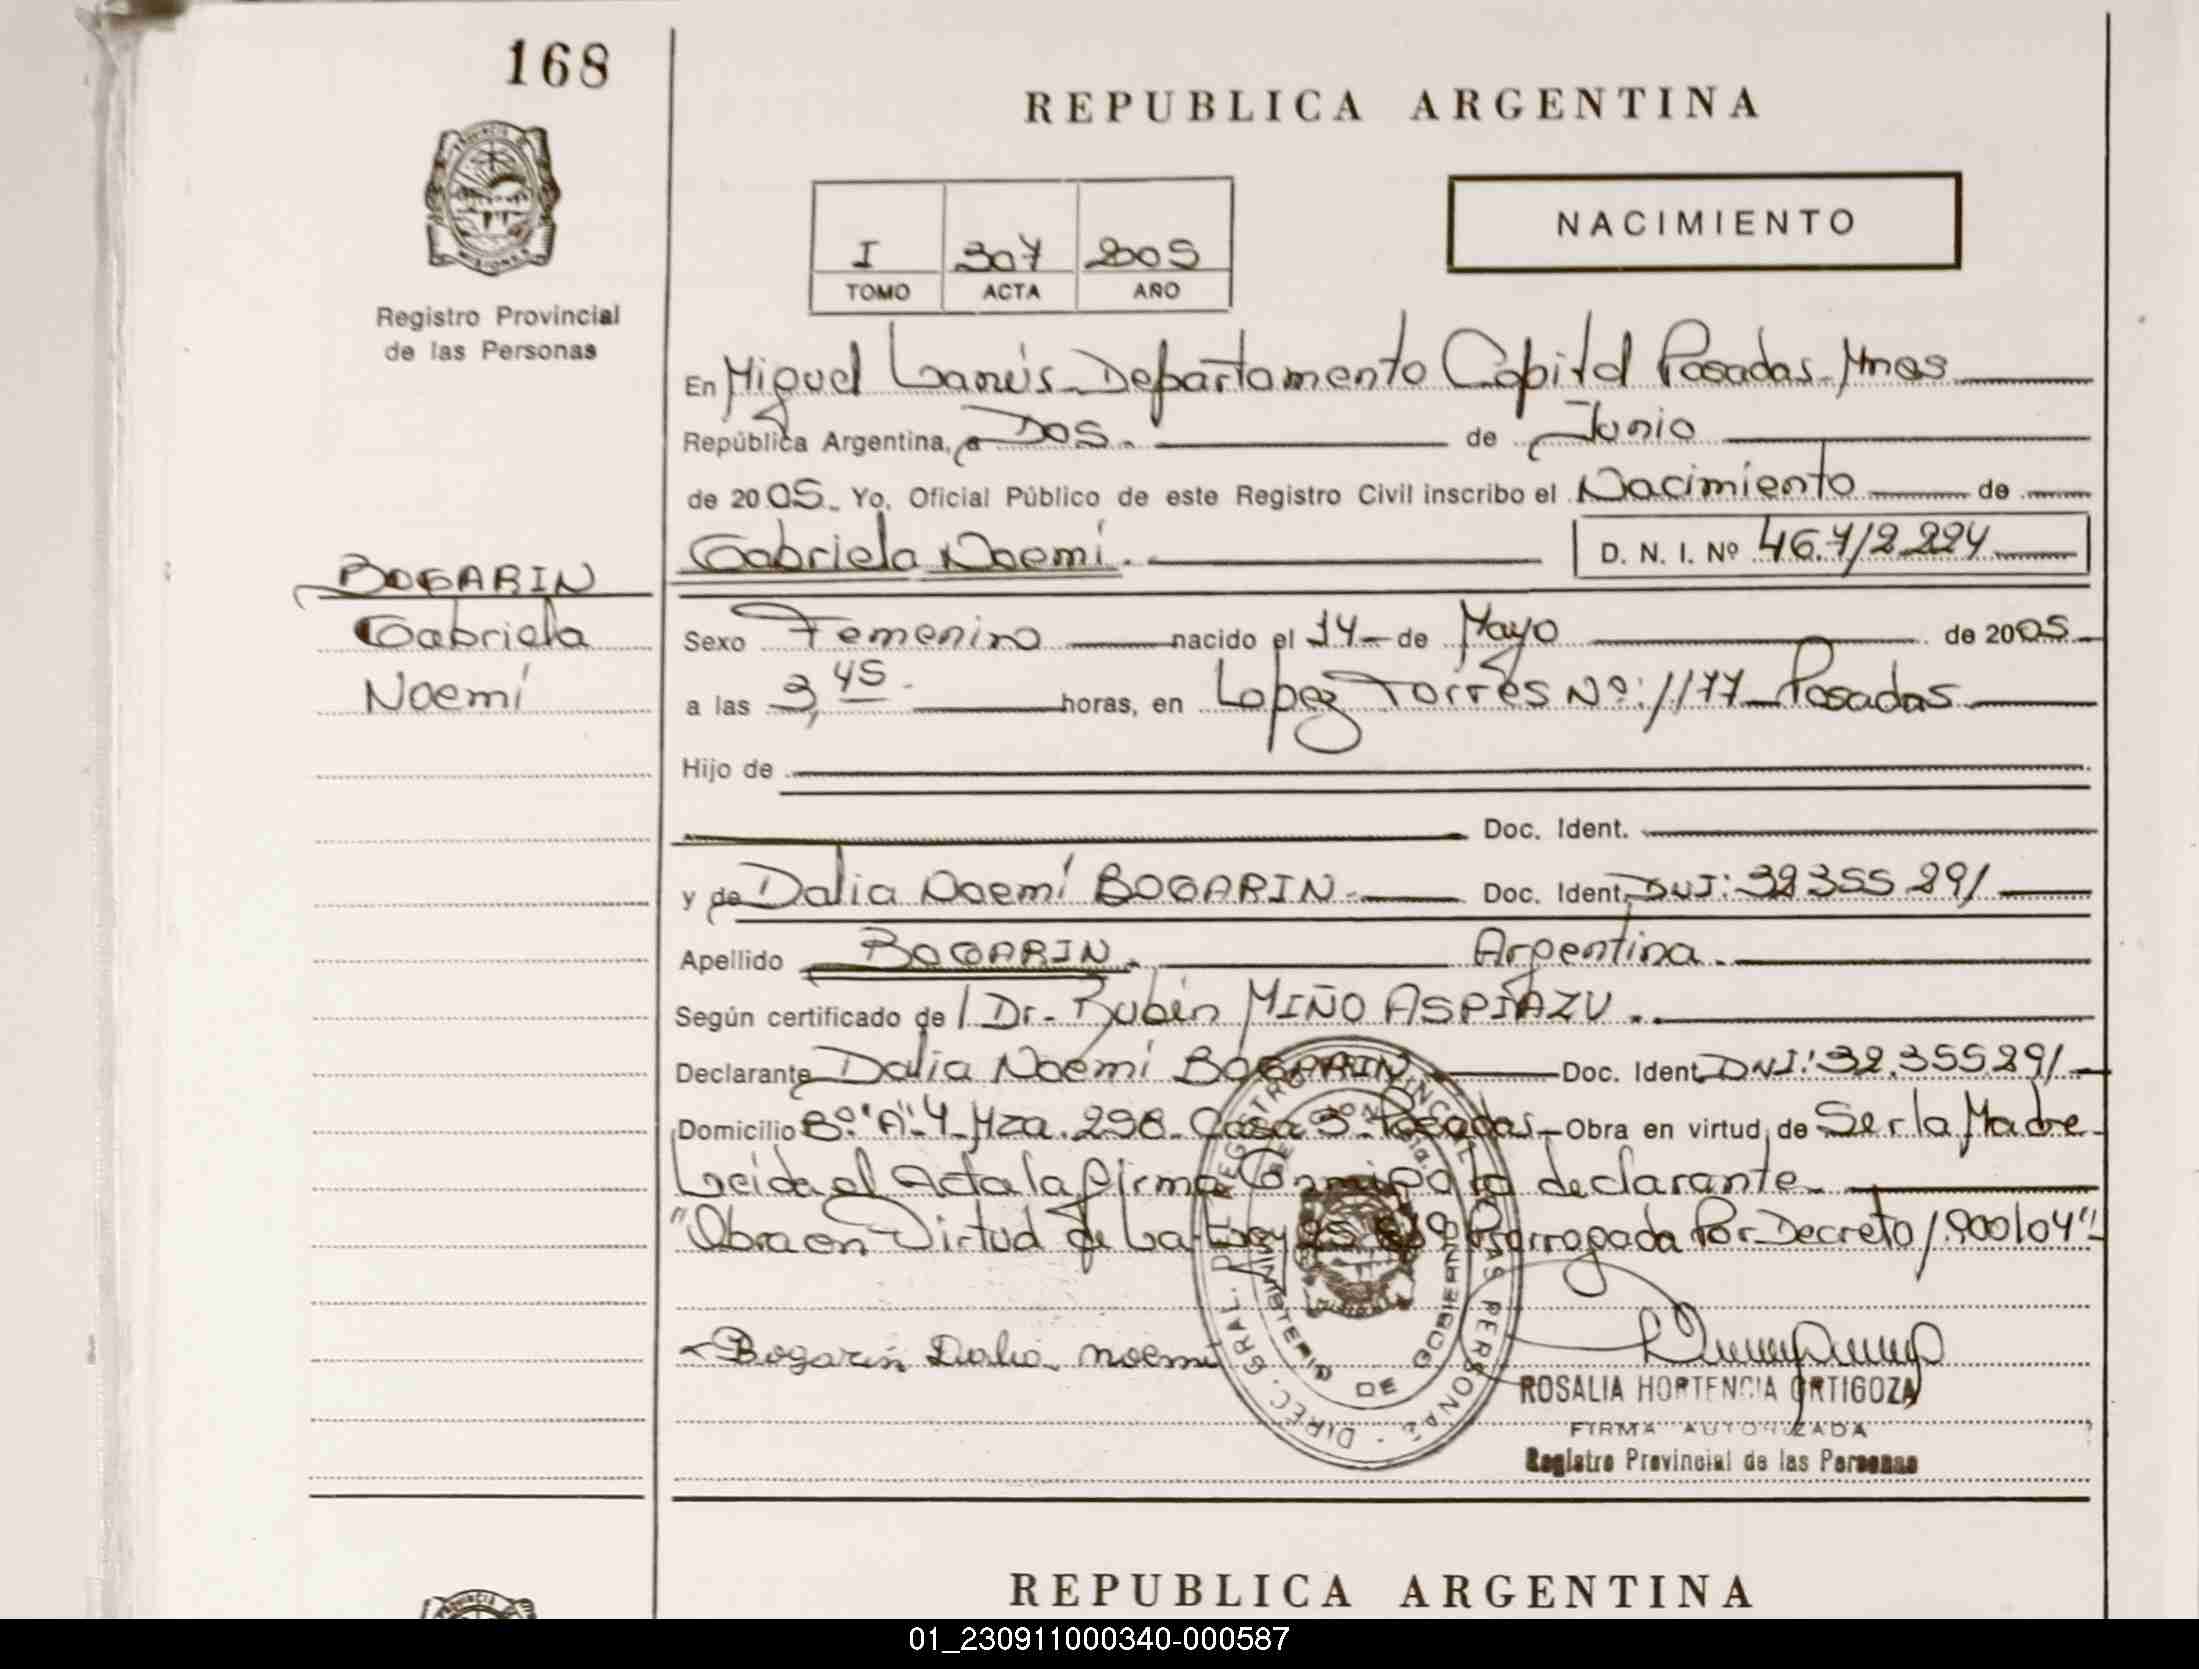 168
REPUBLICA ARGENTINA
NACIMIENTO
I 307 2005
TOMO ACTA AÑO
Registro Provincial
de las Personas
En Miguel Lanús - Departamento Capital Posadas - Mnes
República Argentina, a Dos. de Junio
de 2005. Yo, Oficial Público de este Registro Civil inscribo el Nacimiento de
Gabriela Noemí. D. N. I. Nº 46.712.224
BOGARIN
Gabriela
Noemí
Sexo Femenino nacido el 14 de Mayo de 2005
a las 3,45 horas, en Lopez Torres Nº: 1177 - Posadas
Hijo de
Doc. Ident.
y de Dalia Noemí BOGARIN Doc. Ident. DNI: 32355.291
Apellido BOGARIN. Argentina.
Según certificado de / Dr. Rubén MIÑO ASPIAZU.
Declarante Dalia Noemí BOGARIN Doc. Ident. DNI: 32.355291
Domicilio Bº "A" 4 - Mza. 298 - Casa 3 - Posadas - Obra en virtud de Ser la Madre
Leida el Acta la firma Conmigo la declarante
"Obra en Virtud de La Ley 25 819 Prorrogada Por Decreto 1900/04"
Bogarin Dalia noemi
DIREC. GRAL. DEL REGISTRO PROVINCIAL DE LAS PERSONAS
MINISTERIO DE GOBIERNO
MISIONES
ROSALIA HORTENCIA ORTIGOZA
FIRMA AUTORIZADA
Registro Provincial de las Personas
REPUBLICA ARGENTINA
01_230911000340-000587